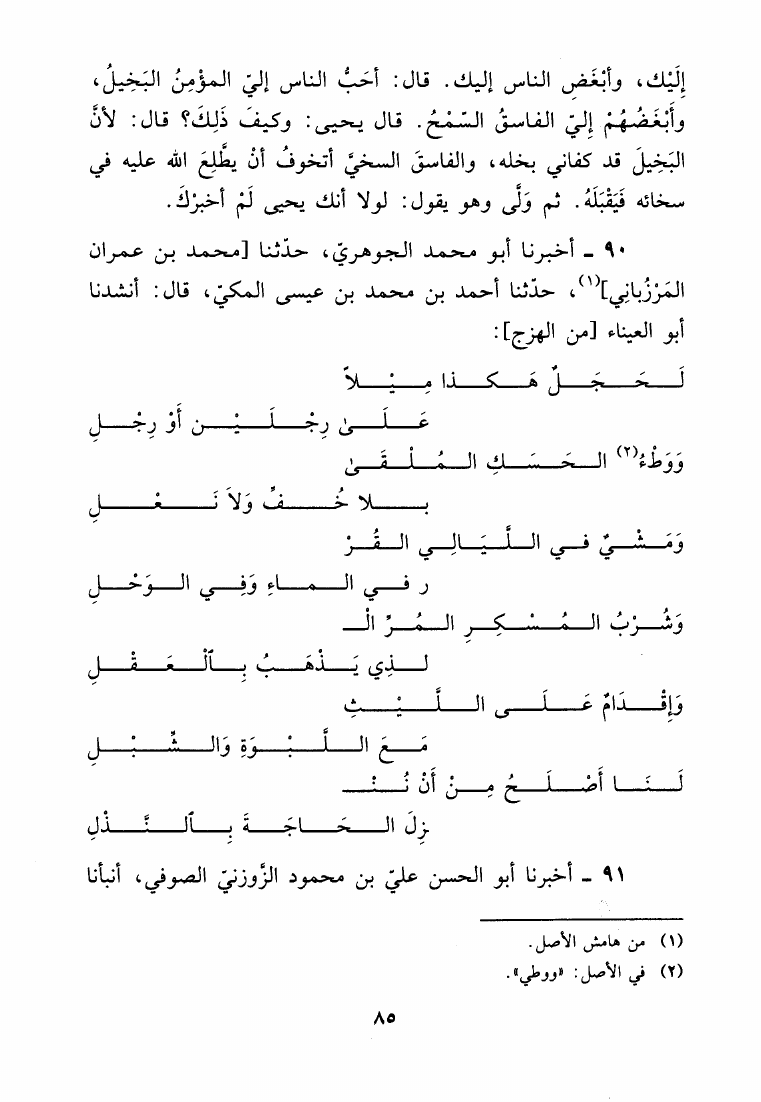 إِلَيْك، وأبْغَضِ الناس إليك. قال: أحَبُّ الناس إليّ المؤْمِنُ البَخِيلُ،
وأَبْغَضُهُمْ إليّ الفاسقُ السّمْحُ. قال يحيى: وكيفَ ذَلِكَ؟ قال: لأنَّ
البَخِيلَ قد كفاني بخله، والفاسقَ السخيَّ أتخوفُ أنْ يطَّلِعَ الله عليه في
سخائه فَيَقْبَلَهُ. ثم وَلَّى وهو يقول: لولا أنك يحيى لَمْ أخبرْكَ.
٩٠ - أخبرنا أبو محمد الجوهريّ، حدّثنا [محمد بن عمران
المَرْزُبانِي](١)، حدّثنا أحمد بن محمد بن عيسى المكيّ، قال: أنشدنا
أبو العيناء [من الهزج]:
لَحَجَلٌ هَكذا مِيْلاً
عَلَى رِجْلَيْن أَوْ رِجْلِ
وَوَطْءُ(٢) الحَسَكِ المُلْقَى
بلا خُفٍّ وَلاَ نَعْلِ
وَمَشْيٌ في اللَّيَالِي القُرْ
ر في الماءِ وَفِي الوَحْلِ
وَشُرْبُ المُسْكِرِ المُرِّ الْـ
لذِي يَذْهَبُ بِالْعَقْلِ
وَإِقْدَامٌ عَلَى اللَّيْثِ
مَعَ اللَّبْوَةِ وَالشِّبْلِ
لَنَا أَصْلَحُ مِنْ أَنْ نُنْـ
زِلَ الحَاجَةَ بِالنَّذْلِ
٩١ - أخبرنا أبو الحسن عليّ بن محمود الزَّوزنيّ الصوفي، أنبأنا
(١) من هامش الأصل.
(٢) في الأصل: «ووطي».
٨٥